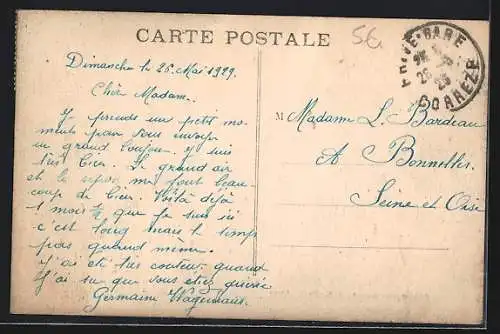 CARTE POSTALE
56
Dimanche le 26 Mai 1929.
Chère Madame.
J'y prends un petit mo-
ments pour vous envoyer
un grand bonjour. J'y suis
très bien. Le grand air
et le repos me font beau-
coup de bien. Voilà déjà
1 mois ½ que je suis ici
c'est long mais le temps
pas quand même.
J'ai été très content quand
J'ai su que vous étiez guérie
Germaine
M Madame L. Bardeau
A Bonnelles.
Seine et Oise
BRIVE-GARE
CORREZE